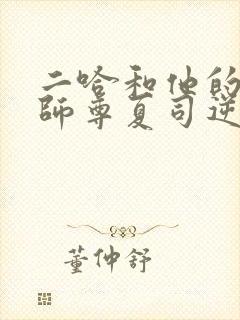 二哈和他的
師尊夏司逆
董仲舒